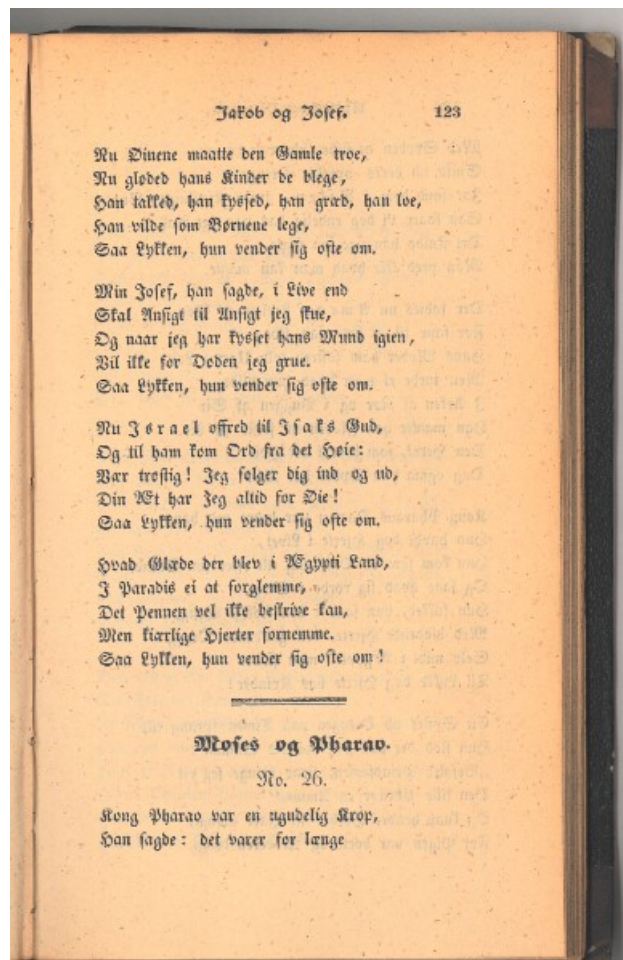 Jakob og Josef. 123
Nu Øinene maatte den Gamle troe,
Nu gløded hans Kinder de blege,
Han takked, han kyssed, han græd, han loe,
Han vilde som Børnene lege,
Saa Lykken, hun vender sig ofte om.
Min Josef, han sagde, i Live end
Skal Ansigt til Ansigt jeg skue,
Og naar jeg har kysset hans Mund igien,
Vil ikke for Døden jeg grue.
Saa Lykken, hun vender sig ofte om.
Nu Israel offred til Isaks Gud,
Og til ham kom Ord fra det Høie:
Vær trøstig! Jeg følger dig ind og ud,
Din Æt har Jeg altid for Øie!
Saa Lykken, hun vender sig ofte om.
Hvad Glæde der blev i Ægypti Land,
I Paradis ei at forglemme,
Det Pennen vel ikke beskrive kan,
Men kiærlige Hjerter fornemme.
Saa Lykken, hun vender sig ofte om!
Moses og Pharao.
No. 26.
Kong Pharao var en ugudelig Krop,
Han sagde: det varer for længe